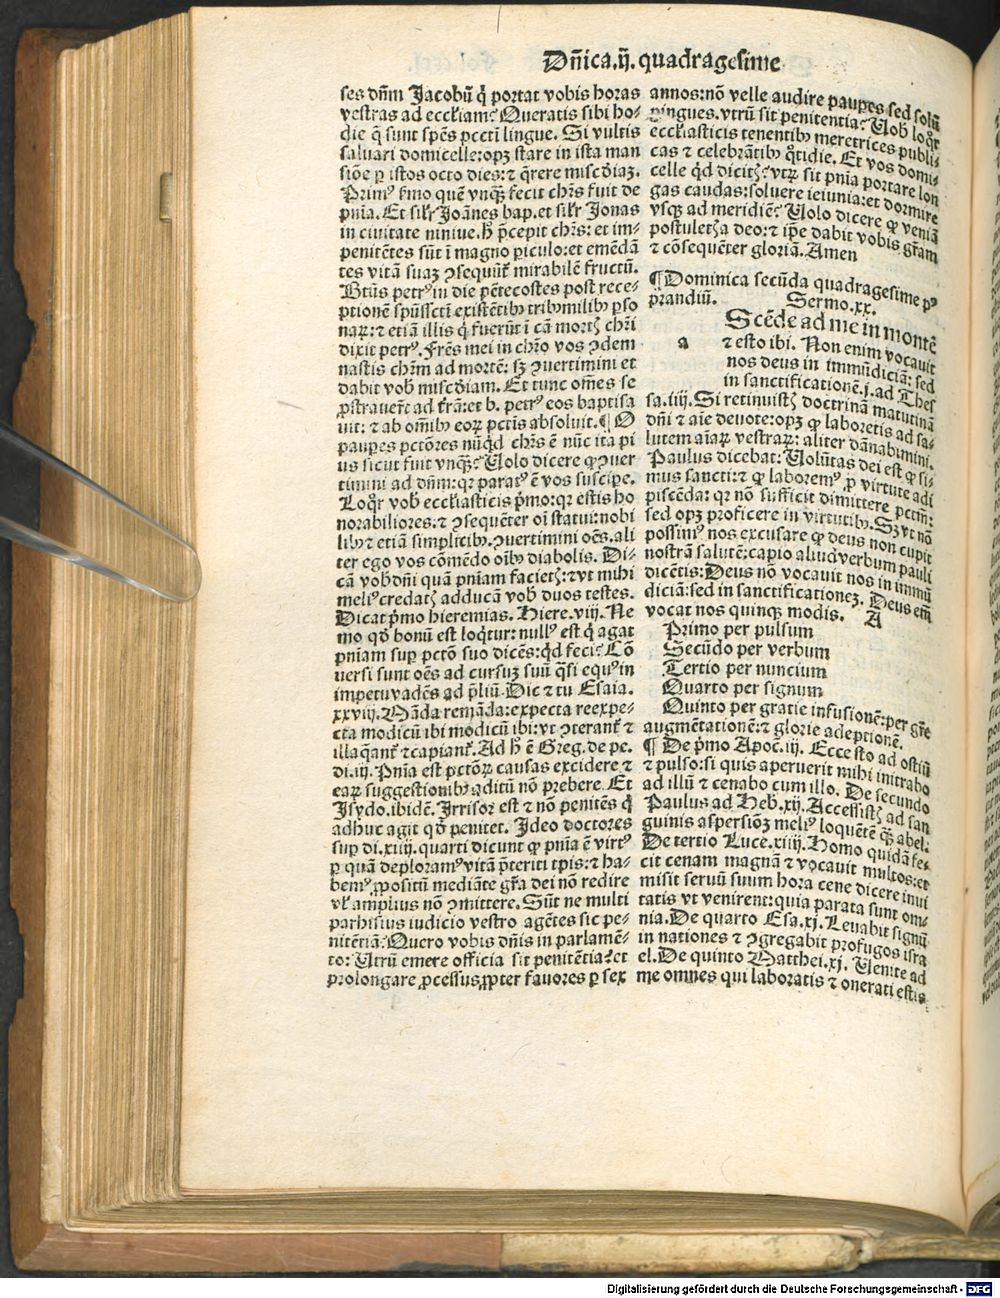 Dn̄ica.ij. quadragesime
ses dn̄m Jacobū q̇ portat vobis horas
vestras ad eccłiam? Queratis sibi ho-
die q̄ sunt spēs pcc̄ti lingue. Si vultis
saluari domicelle:opꝫ stare in ista man
siōe ꝑ istos octo dies: ⁊ q̄rere misc̄diaꝫ.
Primꝰ s̄mo quē vnq̄ꝫ fecit chr̄s fuit de
pn̄ia. Et siłr Joānes bap. et siłr Jonas
in ciuitate niniue. h̄ p̄cepit chr̄s: et im-
penitētes sūt ī magno piculo: et emēdā
tes vitā suaꝫ ꝯsequūt᷑ mirabilē fructū.
Btūs petrꝰ in die pētecostes post rece-
ptionē spūssctī existētibꝫ tribꝰ milibꝫ ꝑso
naꝝ: ⁊ etiā illis q̇ fuerūt ī cā mortꝭ chr̄i
dixit petrꝰ. Fr̄es mei in chr̄o vos ꝯdem
nastis chr̄m ad mortē: sꝫ ꝯuertimini et
dabit vob̄ misc̄diam. Et tunc om̄es se
ꝓstrauer̄t ad t̄rā: et b. petrꝰ eos baptisa
uit: ⁊ ab om̄ibꝰ eoꝝ pctīs absoluit. ¶ O
paupes pctōres nūq̇d chr̄s ē nūc ita pi
us sicut fuit vnq̄ꝫ? Uolo dicere ꝙ ꝯuer
timini ad dn̄m: qꝛ paratꝰ ē vos suscipe.
Loq̄r vob̄ eccłiasticis p̄mo: qꝛ estis ho
norabiliores. ⁊ ꝯsequēter oī statui: nobi
libꝰ ⁊ etiā simplicibꝰ. ꝯuertimini oēs. ali
ter ego vos cōmēdo oībꝰ diabolis. Di-
cā vob̄ dn̄i quā pn̄iam facietꝭ: ⁊ vt mihi
meliꝰ credatꝭ adducā vob̄ duos testes.
Dicat p̄mo hieremias. Hiere. viij. Ne
mo qd̄ bonū est loq̇tur: nullꝰ est q̇ agat
pn̄iam suꝑ pctō suo dicēs: q̇d feci? Cō
uersi sunt oēs ad cursuꝫ suū q̄si equꝰ in
impetu vadēs ad p̄liū. Dic ⁊ tu Esaia.
xxviij. Māda remāda: expecta reexpe-
cta modicū ibi modicū ibi: vt ꝯterant᷑ ⁊
illaq̄ant᷑ ⁊ capiant᷑. Ad h̄ ē Greg. de pe.
di. iij. Pn̄ia est pctōꝝ causas excidere ⁊
eaꝝ suggestionibꝰ aditū nō prebere. Et
Jsydo. ibidē. Irrisor est ⁊ nō penitēs q̇
adhuc agit qd̄ penitet. Ideo doctores
suꝑ di. xiiij. quarti dicunt ꝙ pn̄ia ē virtꝰ
ꝑ quā deploramꝰ vitā p̄teriti tp̄is: ⁊ ha-
bemꝰ ꝓpositū mediāte gr̄a dei nō redire
vł amplius nō ꝯmittere. Sūt ne multi
parhisius iudicio vestro agētes sic pe-
nitētiā? Quero vobis dn̄is in parlamē-
to: Utrū emere officia sit penitētia? et
prolongare ꝓcessus ꝓpter fauores ꝑ sex
annos: nō velle audire paupes sed solū
pingues. vtrū sit penitentia? Uob̄ loq̄r
eccłiasticis tenentibꝰ meretrices publi-
cas ⁊ celebrātibꝰ q̄tidie. Et vos domi-
celle q̇d dicitꝭ? vtꝝ sit pn̄ia portare lon
gas caudas: soluere ieiunia: et dormire
vsqꝫ ad meridiē? Uolo dicere ꝙ veniā
postuletꝭ a deo: ⁊ ip̄e dabit vobis gr̄am
⁊ cōsequēter gloriā. Amen
¶ Dominica secūda quadragesime pꝰ
prandiū. Sermo. xx.
a
Scēde ad me in montē
⁊ esto ibi. Non enim vocauit
nos deus in immūdiciā: sed
in sanctificationē. j. ad Thes
sa. iiij. Si retinuistꝭ doctrinā matutinā
dn̄i ⁊ aīe deuote: opꝫ ꝙ laboretis ad sa-
lutem aīaꝝ vestraꝝ: aliter dānabimini.
Paulus dicebat: Uolūtas dei est ꝙ si-
mus sancti: ⁊ ꝙ laboremꝰ ꝓ virtute adi
piscēda: qꝛ nō sufficit dimittere pctm̄:
sed opꝫ proficere in virtutibꝰ. Sꝫ vt nō
possimꝰ nos excusare ꝙ deus non cupit
nostrā salutē: capio aliud verbum pauli
dicētis: Deus nō vocauit nos in immū
diciā: sed in sanctificationeꝫ. Deus em̄
vocat nos quinqꝫ modis. A
Primo per pulsum
Secūdo per verbum
Tertio per nuncium
Quarto per signum
Quinto per gratie infusionē: per gr̄e
augmētationē: ⁊ glorie adeptionē.
¶ De p̄mo Apoc̄. iij. Ecce sto ad ostiū
⁊ pulso: si quis aperuerit mihi intrabo
ad illū ⁊ cenabo cum illo. De secundo
Paulus ad Heb. xij. Accessistꝭ ad san
guinis aspersiōꝫ meliꝰ loquētē q̄ꝫ abel:
De tertio Luce. xiiij. Homo quidā fe-
cit cenam magnā ⁊ vocauit multos: et
misit seruū suum hora cene dicere inui
tatis vt venirent: quia parata sunt om-
nia. De quarto Esa. xj. Leuabit signū
in nationes ⁊ ꝯgregabit profugos isra
el. De quinto Matthei. xj. Uenite ad
me omnes qui laboratis ⁊ onerati estis
Digitalisierung gefördert durch die Deutsche Forschungsgemeinschaft - DFG